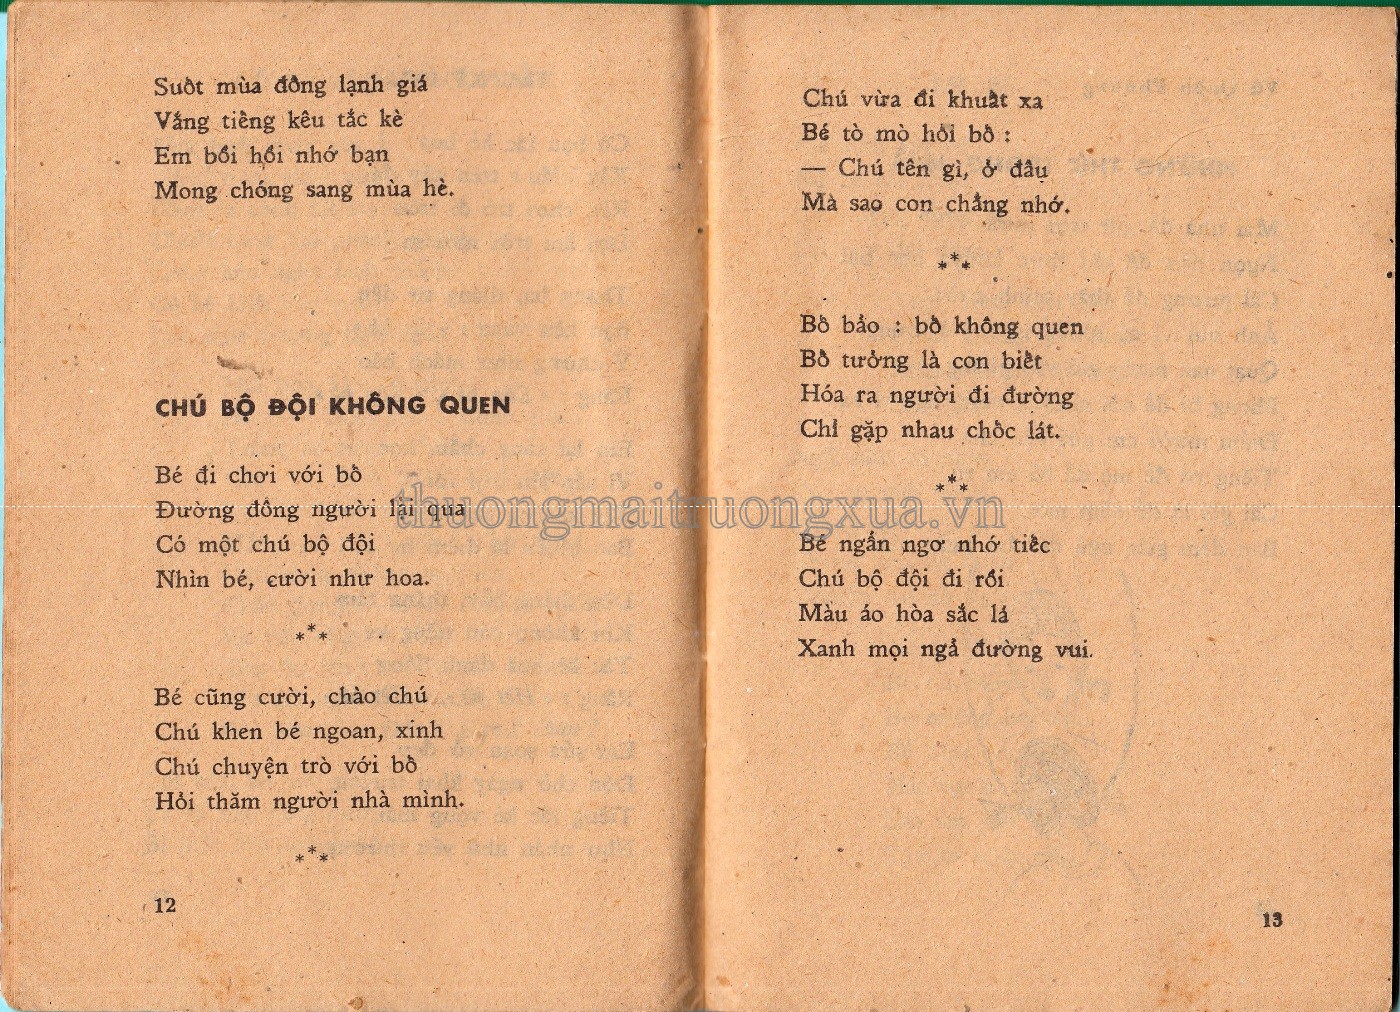 Suốt mùa đông lạnh giá
Vắng tiếng kêu tắc kè
Em bồi hồi nhớ bạn
Mong chóng sang mùa hè.
CHÚ BỘ ĐỘI KHÔNG QUEN
Bé đi chơi với bố
Đường đông người lại qua
Có một chú bộ đội
Nhìn bé, cười như hoa.
***
Bé cũng cười, chào chú
Chú khen bé ngoan, xinh
Chú chuyện trò với bố
Hỏi thăm người nhà mình.
***
12
Chú vừa đi khuất xa
Bé tò mò hỏi bố :
— Chú tên gì, ở đâu
Mà sao con chẳng nhớ.
***
Bố bảo : bố không quen
Bố tưởng là con biết
Hóa ra người đi đường
Chỉ gặp nhau chốc lát.
***
Bé ngẩn ngơ nhớ tiếc
Chú bộ đội đi rồi
Màu áo hòa sắc lá
Xanh mọi ngả đường vui.
13
thuongmaitruongxua.vn